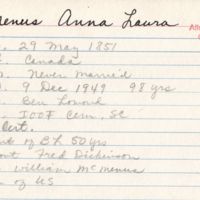 enus Anna Laura
29 May 1851
Canada
Never Married
9 Dec 1949 98 yrs
Ben Lomond
IOOF Cem. SC
Cert.
t of BL 50 yrs
Fred Dickinson
William McMenus
of US